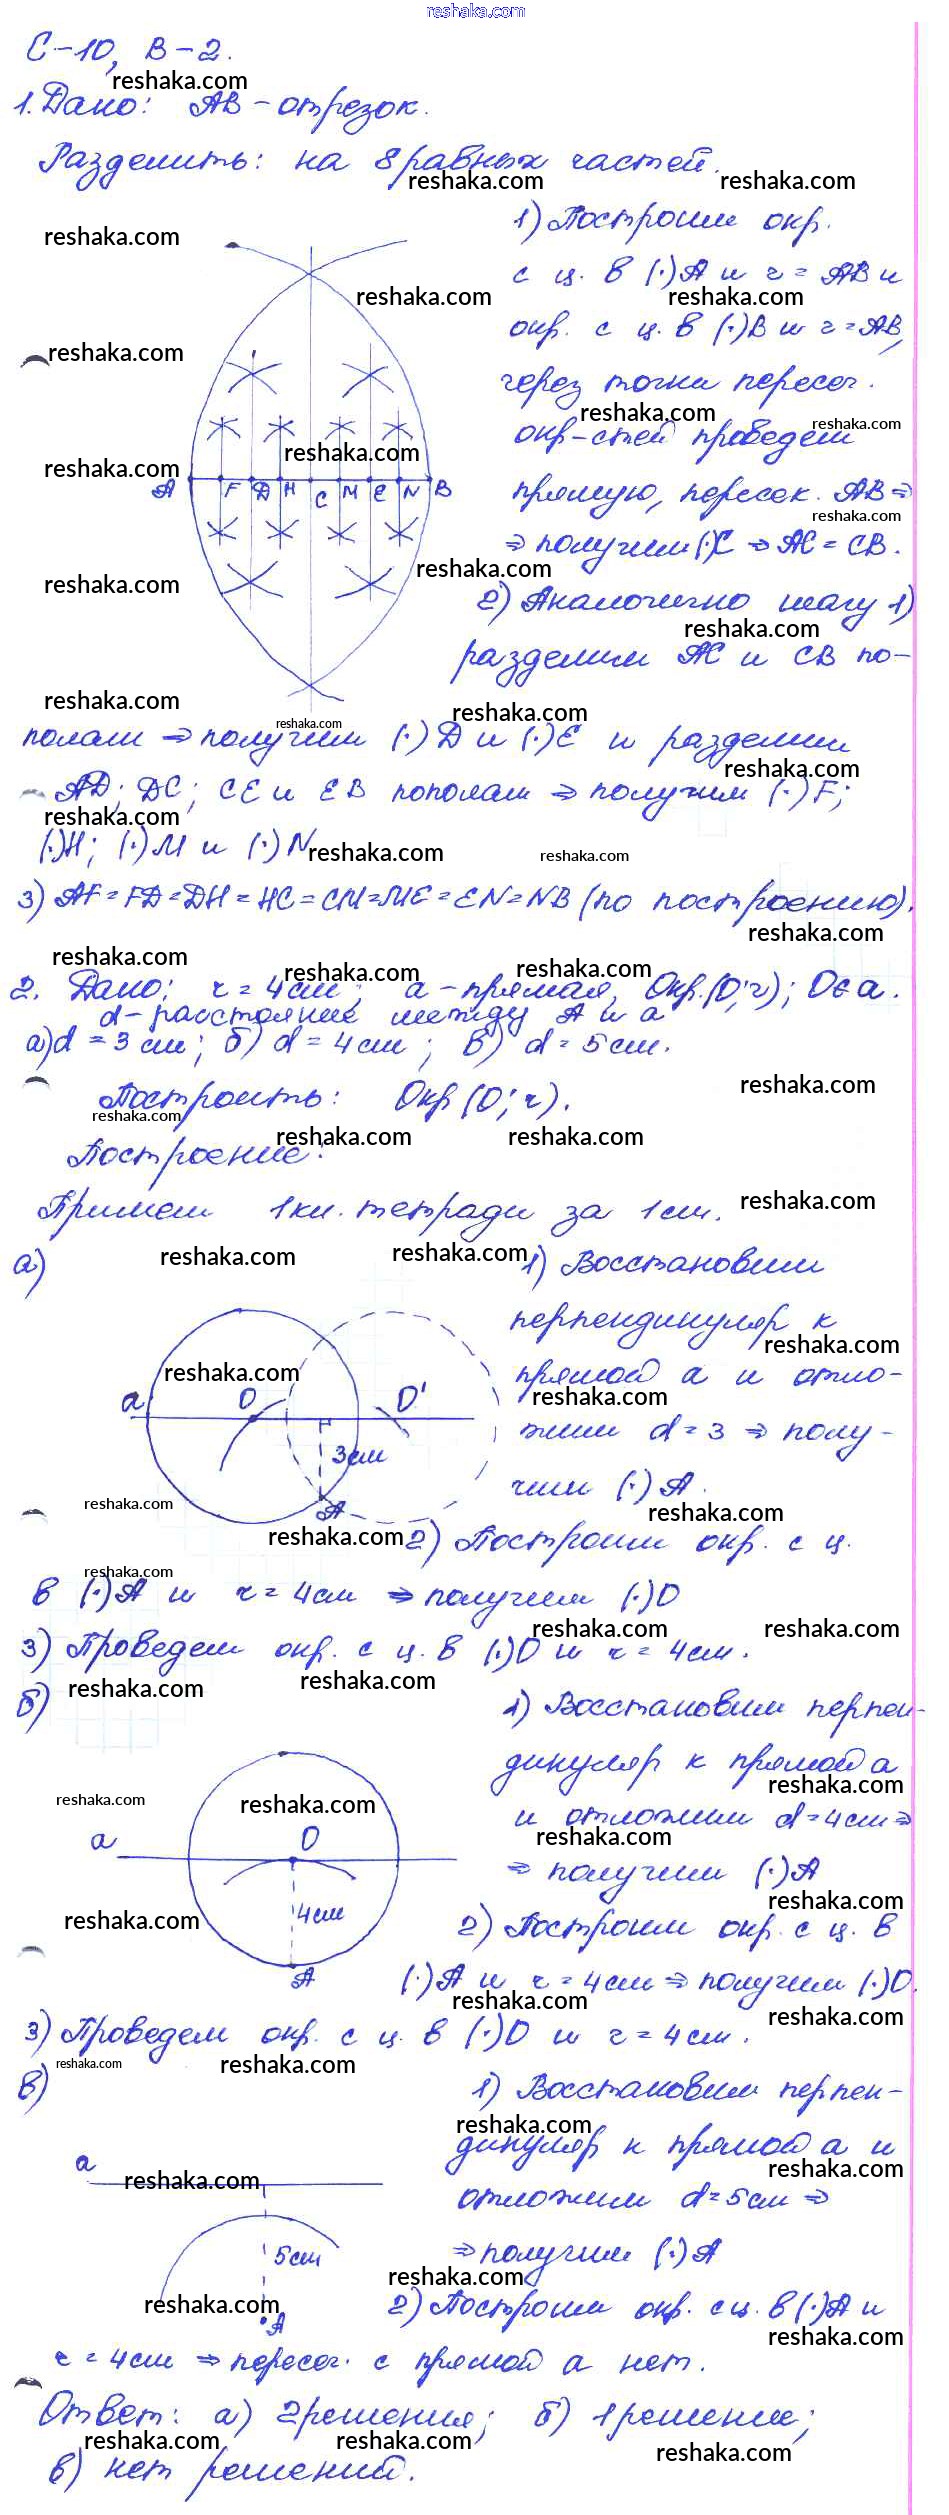 reshaka.com
С-10, В-2.
1. Дано: АВ - отрезок.
Разделить: на 8 равных частей.
1) Построим окр.
с ц. в (·)А и r = АВ и
окр. с ц. в (·)В и r = АВ,
через точки пересеч.
окр-стей проведем
прямую, пересек. АВ ⇒
⇒ получим (·)С ⇒ АС = СВ.
А F D H C M E N B
2) Аналогично шагу 1)
разделим АС и СВ по-
полам ⇒ получим (·) D и (·) E и разделим
AD; DC; CE и EB пополам ⇒ получим (·) F;
(·)H; (·) M и (·) N
3) AF = FD = DH = HC = CM = ME = EN = NB (по построению).
2. Дано: r = 4 см; а - прямая, Окр.(О; r); О ∈ а.
d - расстояние между А и а
а) d = 3 см; б) d = 4 см; в) d = 5 см.
Построить: Окр (О; r).
Построение:
Примем 1 кл. тетради за 1 см.
а)
1) Восстановим
перпендикуляр к
прямой а и отло-
жим d = 3 ⇒ полу-
чим (·) А.
а О О'
3 см
А
2) Построим окр. с ц.
в (·) А и r = 4 см ⇒ получим (·) О
3) Проведем окр. с ц. в (·) О и r = 4 см.
б)
1) Восстановим перпен-
дикуляр к прямой а
и отложим d = 4 см ⇒
⇒ получим (·) А
а О
4 см
А
2) Построим окр. с ц. в
(·) А и r = 4 см ⇒ получим (·) О.
3) Проведем окр. с ц. в (·) О и r = 4 см.
в)
1) Восстановим перпен-
дикуляр к прямой а и
отложим d = 5 см ⇒
⇒ получим (·) А
а
5 см
А
2) Построим окр. с ц. в (·) А и
r = 4 см ⇒ пересеч. с прямой а нет.
Ответ: а) 2 решения; б) 1 решение;
в) нет решений.